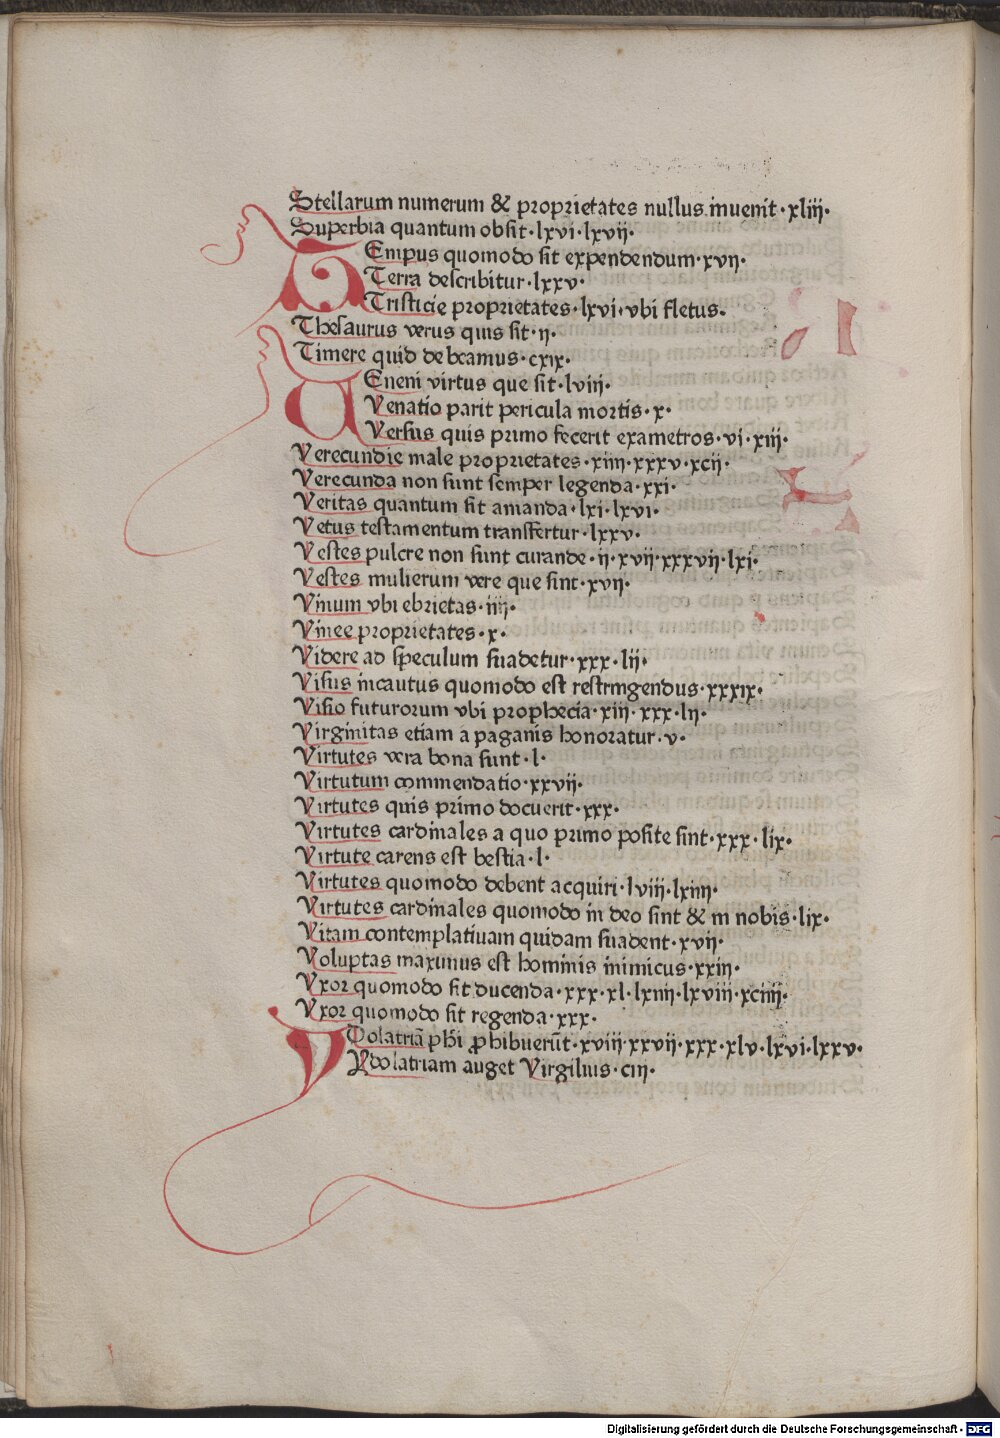 Stellarum numerum & proprietates nullus inuenit·xliii·
Superbia quantum obsit·lxvi·lxvii·
TEmpus quomodo sit expendendum·xvii·
Terra describitur·lxxv·
Tristicie proprietates·lxvi·vbi fletus·
Thesaurus verus quis sit·ii·
Timere quid debeamus·cxix·
VEneni virtus que sit·lviii·
Venatio parit pericula mortis·x·
Versus quis primo fecerit exametros·vi·xiii·
Verecundie male proprietates·xiiii·xxxv·xcii·
Verecunda non sunt semper legenda·xxi·
Veritas quantum sit amanda·lxi·lxvi·
Vetus testamentum transfertur·lxxv·
Vestes pulcre non sunt curande·ii·xvii·xxxvii·lxi·
Vestes mulierum vere que sint·xvii·
Vinum vbi ebrietas·iiii·
Vinee proprietates·x·
Videre ad speculum suadetur·xxx·lii·
Visus incautus quomodo est restringendus·xxxix·
Visio futurorum vbi prophecia·xiii·xxx·lii·
Virginitas etiam a paganis honoratur·v·
Virtutes vera bona sunt·l·
Virtutum commendatio·xxvii·
Virtutes quis primo docuerit·xxx·
Virtutes cardinales a quo primo posite sint·xxx·lix·
Virtute carens est bestia·l·
Virtutes quomodo debent acquiri·lviii·lxiiii·
Virtutes cardinales quomodo in deo sint & in nobis·lix·
Vitam contemplatiuam quidam suadent·xvii·
Voluptas maximus est hominis inimicus·xxiii·
Vxor quomodo sit ducenda·xxx·xl·lxiiii·lxviii·xciiii·
Vxor quomodo sit regenda·xxx·
YDolatriā phi ꝓhibuerūt·xviii·xxvii·xxx·xlv·lxvi·lxxv·
Ydolatriam auget Virgilius·ciii·
Digitalisierung gefördert durch die Deutsche Forschungsgemeinschaft - DFG